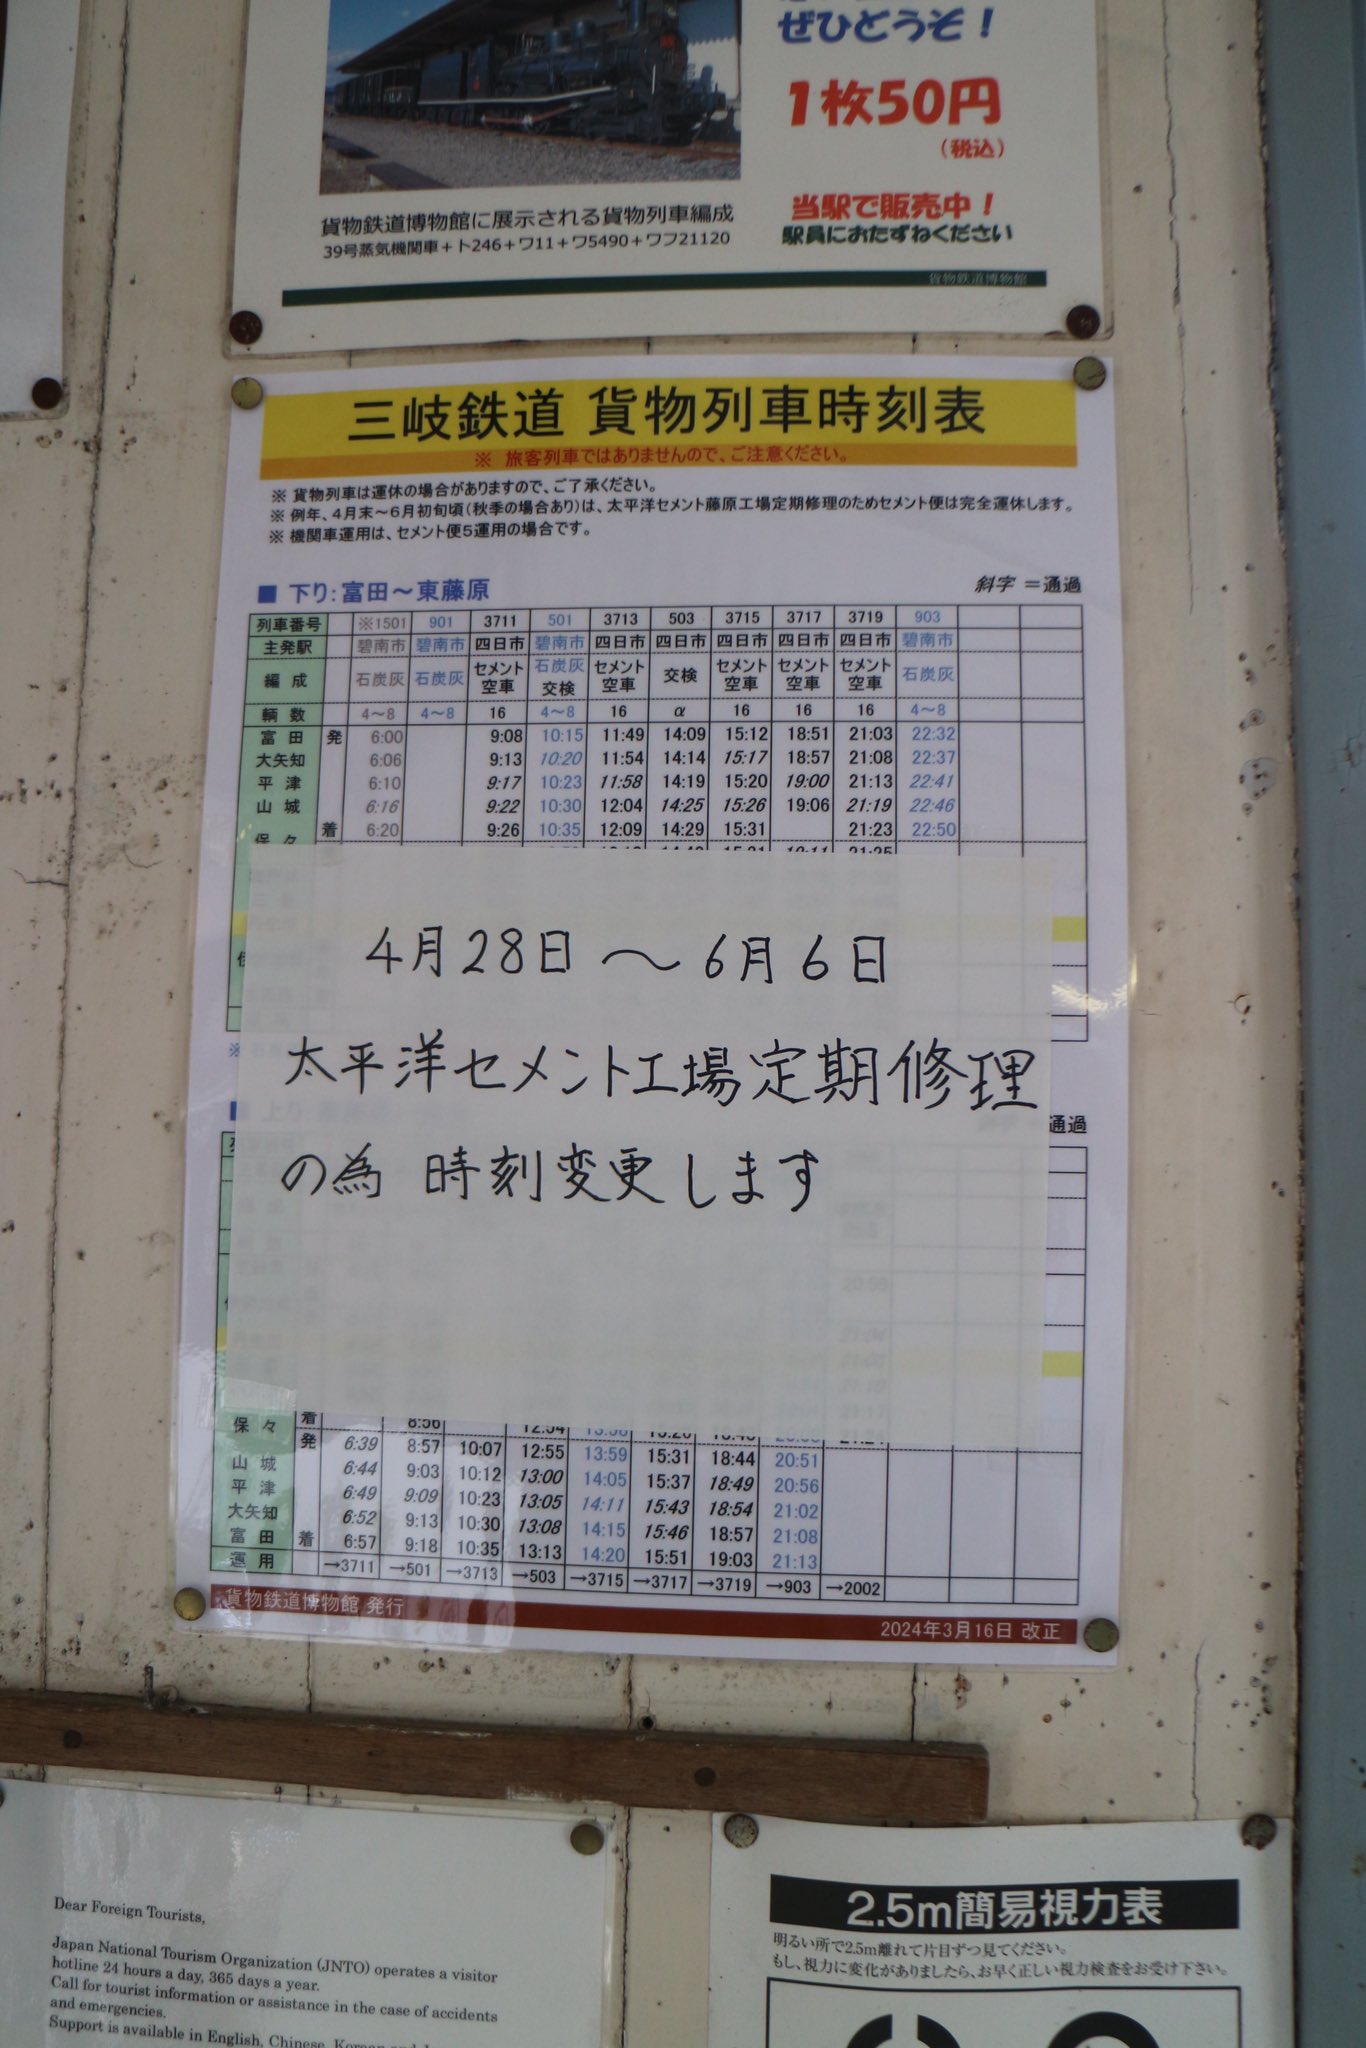 ぜひどうぞ！
1枚50円
（税込）
当駅で販売中！
駅員におたずねください
貨物鉄道博物館に展示される貨物列車編成
39号蒸気機関車＋ト246＋ワ11＋ワ5490＋ワフ21120
貨物鉄道博物館
三岐鉄道 貨物列車時刻表
※ 旅客列車ではありませんので、ご注意ください。
※ 貨物列車は運休の場合がありますので、ご了承ください。
※ 例年、4月末～6月初旬頃（秋季の場合あり）は、太平洋セメント藤原工場定期修理のためセメント便は完全運休します。
※ 機関車運用は、セメント便5運用の場合です。
■ 下り：富田～東藤原 斜字 ＝通過
列車番号 ※1501 901 3711 501 3713 503 3715 3717 3719 903
主発駅 碧南市 碧南市 四日市 碧南市 四日市 四日市 四日市 四日市 四日市 碧南市
編成 石炭灰 石炭灰 セメント空車 石炭灰交検 セメント空車 交検 セメント空車 セメント空車 セメント空車 石炭灰
輌数 4～8 4～8 16 4～8 16 α 16 16 16 4～8
富田 発 6:00 9:08 10:15 11:49 14:09 15:12 18:51 21:03 22:32
大矢知 6:06 9:13 10:20 11:54 14:14 15:17 18:57 21:08 22:37
平津 6:10 9:17 10:23 11:58 14:19 15:20 19:00 21:13 22:41
山城 6:16 9:22 10:30 12:04 14:25 15:26 19:06 21:19 22:46
保々 着 6:20 9:26 10:35 12:09 14:29 15:31 21:23 22:50
4月28日～6月6日
太平洋セメント工場定期修理
の為 時刻変更します
通過
保々 着 8:56 12:54
発 6:39 8:57 10:07 12:55 13:59 15:31 18:44 20:51
山城 6:44 9:03 10:12 13:00 14:05 15:37 18:49 20:56
平津 6:49 9:09 10:23 13:05 14:11 15:43 18:54 21:02
大矢知 6:52 9:13 10:30 13:08 14:15 15:46 18:57 21:08
富田 着 6:57 9:18 10:35 13:13 14:20 15:51 19:03 21:13
運用 →3711 →501 →3713 →503 →3715 →3717 →3719 →903 →2002
貨物鉄道博物館 発行
2024年3月16日 改正
Dear Foreign Tourists,
Japan National Tourism Organization (JNTO) operates a visitor
hotline 24 hours a day, 365 days a year.
Call for tourist information or assistance in the case of accidents
and emergencies.
Support is available in English, Chinese, Korean and
2.5m簡易視力表
明るい所で2.5m離れて片目ずつ見てください。
もし、視力に変化がありましたら、お早く正しい視力検査をお受け下さい。